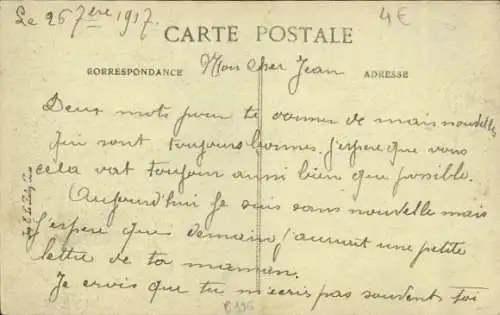 Le 26 7ère 1917.
4€
CARTE POSTALE
CORRESPONDANCE
Mon cher Jean
ADRESSE
Deux mots pour te donner de mais nouvelles
qui sont toujours bonnes. j'espere que vous
cela vat toujour aussi bien que possible.
Aujourd'hui Je suis sans nouvelle mais
j'espere que demain j'aurrait une petite
lettre de ta maman.
Je crois que tu m'ecris pas souvent toi
B195